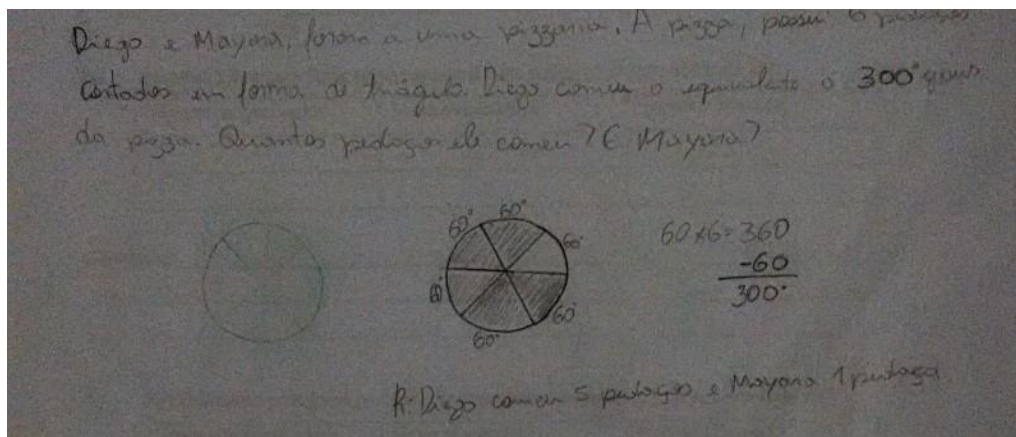 Diego e Mayara, foram a uma pizzaria. A pizza, possui 6 pedaços
cortados em forma de triângulo. Diego comeu o equivalente a 300° graus
da pizza. Quantos pedaços ele comeu? E Mayara?
60° 60°
60°
60°
60° 60°
60x6=360
-60
300°
R: Diego comeu 5 pedaços e Mayara 1 pedaço